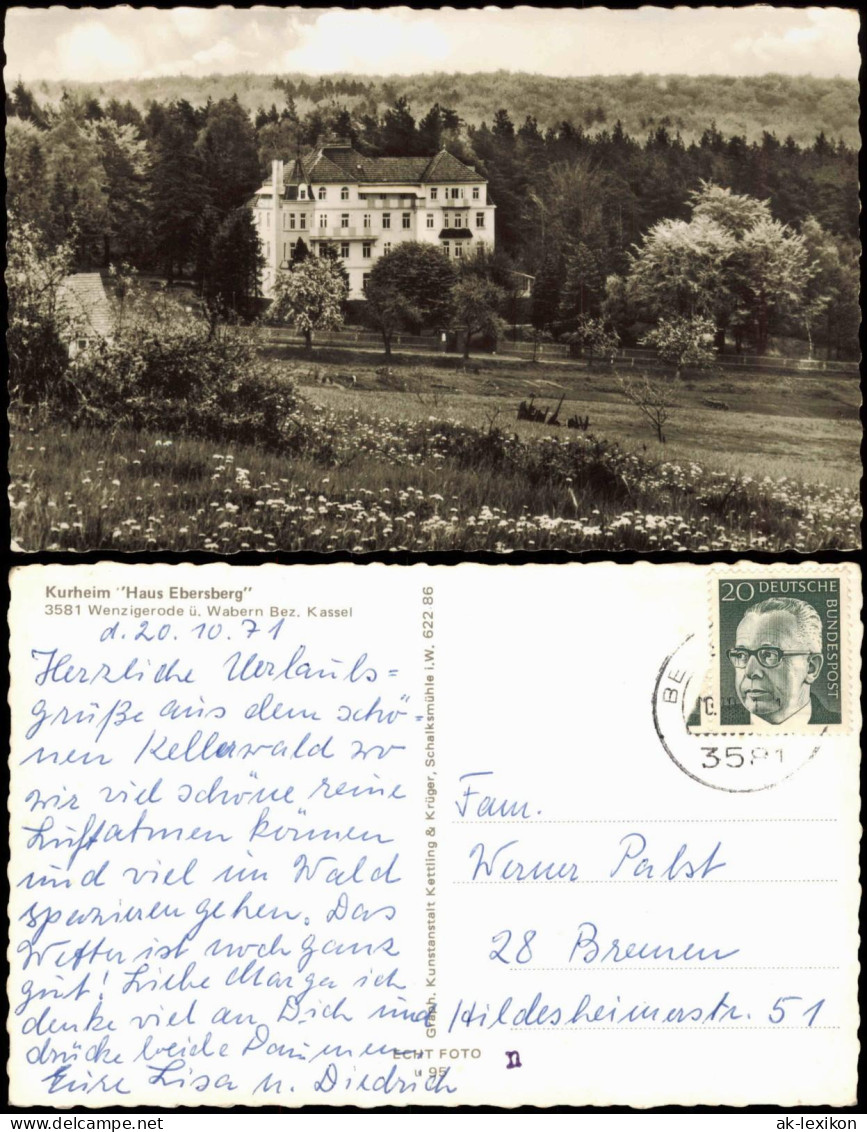 Kurheim "Haus Ebersberg"
3581 Wenzigerode ü. Wabern Bez. Kassel
d. 20. 10. 71
Herzliche Urlaubs=
grüße aus dem schö=
nen Kellerwald wo
wir viel schöne reine
Luft atmen können
und viel im Wald
spazieren gehen. Das
Wetter ist noch ganz
gut! Liebe Marga ich
denke viel an Dich und
drücke beide Daumen
Eure Lisa u. Diedrich
Graph. Kunstanstalt Kettling & Krüger, Schalksmühle i.W. 622 86
ECHT FOTO
ü 95
n
20 DEUTSCHE
BUNDESPOST
BE
3581
Fam.
Werner Pabst
28 Bremen
Hildesheimerstr. 51
ak-lexikon